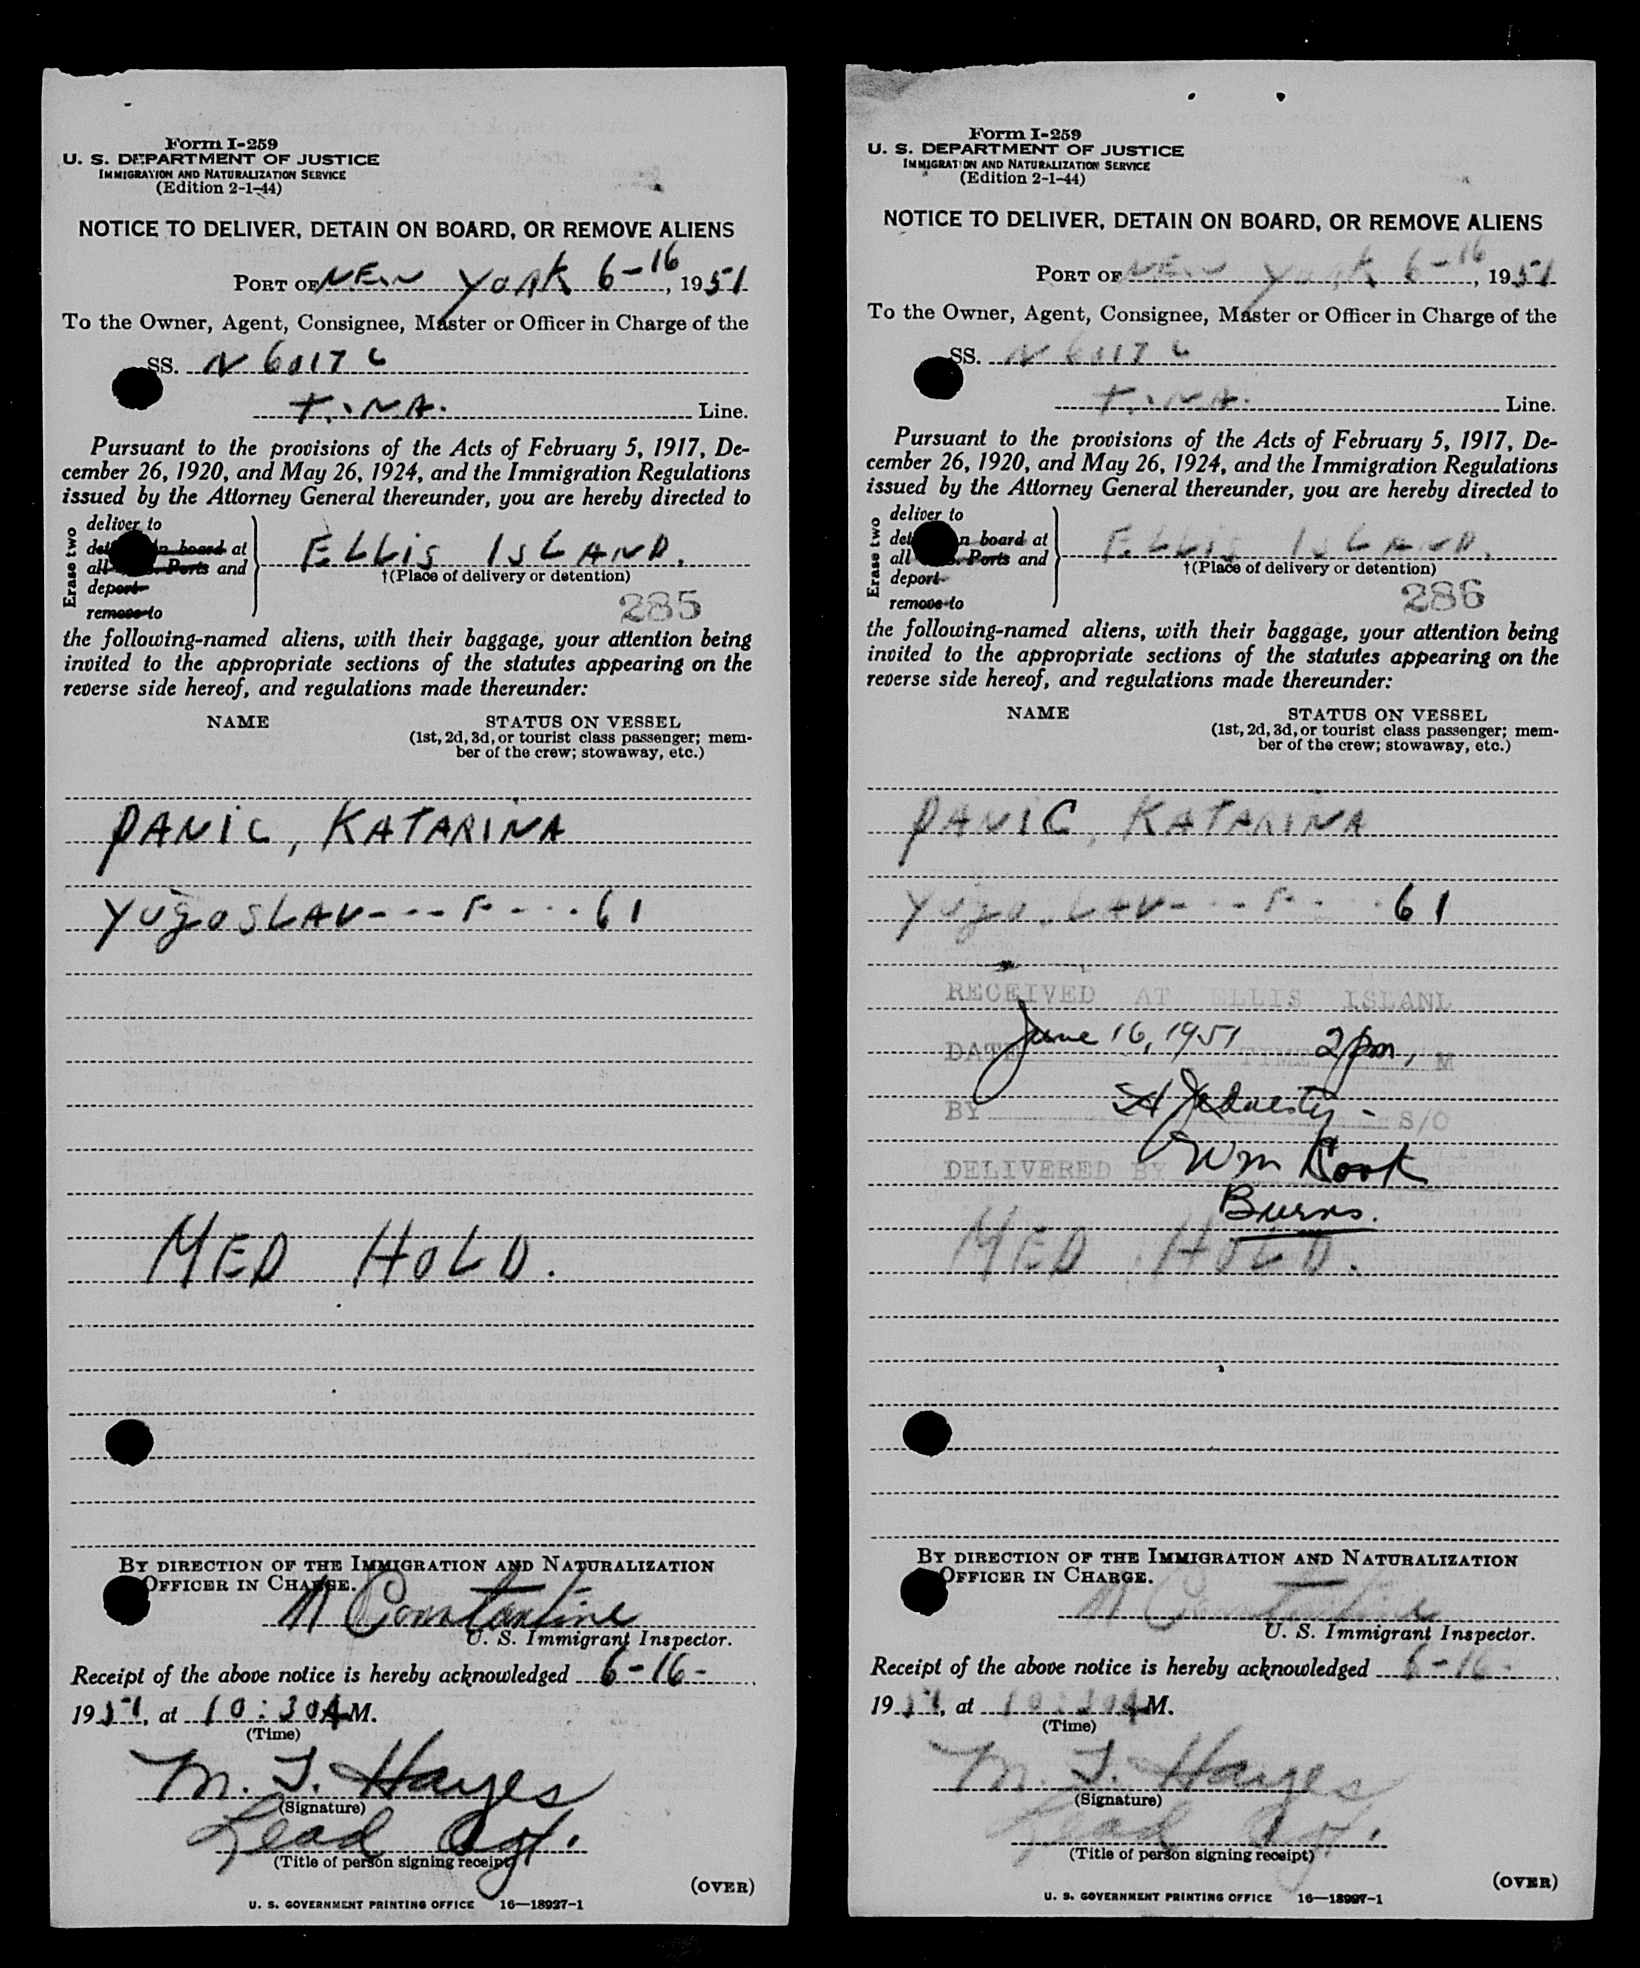 Form I-259
U. S. DEPARTMENT OF JUSTICE
IMMIGRATION AND NATURALIZATION SERVICE
(Edition 2-1-44)
NOTICE TO DELIVER, DETAIN ON BOARD, OR REMOVE ALIENS
PORT OF NEW YORK 6-16, 1951
To the Owner, Agent, Consignee, Master or Officer in Charge of the
SS. N 6017 C
Line.
Pursuant to the provisions of the Acts of February 5, 1917, De-
cember 26, 1920, and May 26, 1924, and the Immigration Regulations
issued by the Attorney General thereunder, you are hereby directed to
Erase two
deliver to
n board at
all Ports and
deport
remove to
ELLIS ISLAND.
†(Place of delivery or detention)
285
the following-named aliens, with their baggage, your attention being
invited to the appropriate sections of the statutes appearing on the
reverse side hereof, and regulations made thereunder:
NAME STATUS ON VESSEL
(1st, 2d, 3d, or tourist class passenger; mem-
ber of the crew; stowaway, etc.)
PANIC, KATARINA
YUGOSLAV - - - F - - - 61
MED HOLD.
BY DIRECTION OF THE IMMIGRATION AND NATURALIZATION
OFFICER IN CHARGE.
N Constantine
U. S. Immigrant Inspector.
Receipt of the above notice is hereby acknowledged 6-16-
1951, at 10:30 A M.
(Time)
M. J. Hayes
(Signature)
Lead Agt.
(Title of person signing receipt)
(OVER)
U. S. GOVERNMENT PRINTING OFFICE 16—18927-1
Form I-259
U. S. DEPARTMENT OF JUSTICE
IMMIGRATION AND NATURALIZATION SERVICE
(Edition 2-1-44)
NOTICE TO DELIVER, DETAIN ON BOARD, OR REMOVE ALIENS
PORT OF NEW YORK 6-16, 1951
To the Owner, Agent, Consignee, Master or Officer in Charge of the
SS. N 6017 C
Line.
Pursuant to the provisions of the Acts of February 5, 1917, De-
cember 26, 1920, and May 26, 1924, and the Immigration Regulations
issued by the Attorney General thereunder, you are hereby directed to
Erase two
deliver to
n board at
all Ports and
deport
remove to
ELLIS ISLAND.
†(Place of delivery or detention)
286
the following-named aliens, with their baggage, your attention being
invited to the appropriate sections of the statutes appearing on the
reverse side hereof, and regulations made thereunder:
NAME STATUS ON VESSEL
(1st, 2d, 3d, or tourist class passenger; mem-
ber of the crew; stowaway, etc.)
PANIC, KATARINA
YUGOSLAV - - - F - - - 61
RECEIVED AT ELLIS ISLAND
DATE June 16, 1951 TIME 2 pm, M
BY S/O
DELIVERED BY Wm Cook
Burns.
MED HOLD.
BY DIRECTION OF THE IMMIGRATION AND NATURALIZATION
OFFICER IN CHARGE.
N Constantine
U. S. Immigrant Inspector.
Receipt of the above notice is hereby acknowledged 6-16-
1951, at 10:30 A M.
(Time)
M. J. Hayes
(Signature)
Lead Agt.
(Title of person signing receipt)
(OVER)
U. S. GOVERNMENT PRINTING OFFICE 16—18927-1